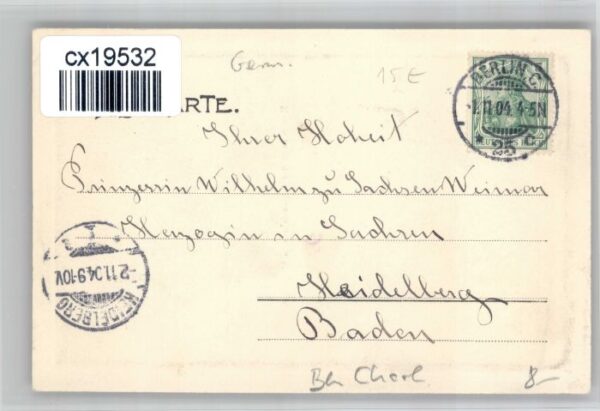 cx19532
Germ.
15 E
KARTE.
BERLIN, C.
11.04. 4-5N
* 25 c
DEUTSCHES REICH
Ihrer Hoheit
Prinzessin Wilhelm zu Sachsen Weimar
Herzogin in Sachsen
Heidelberg
Baden
HEIDELBERG
-2.11.04.9-10V.
* 1 *
Bln Charl
8-